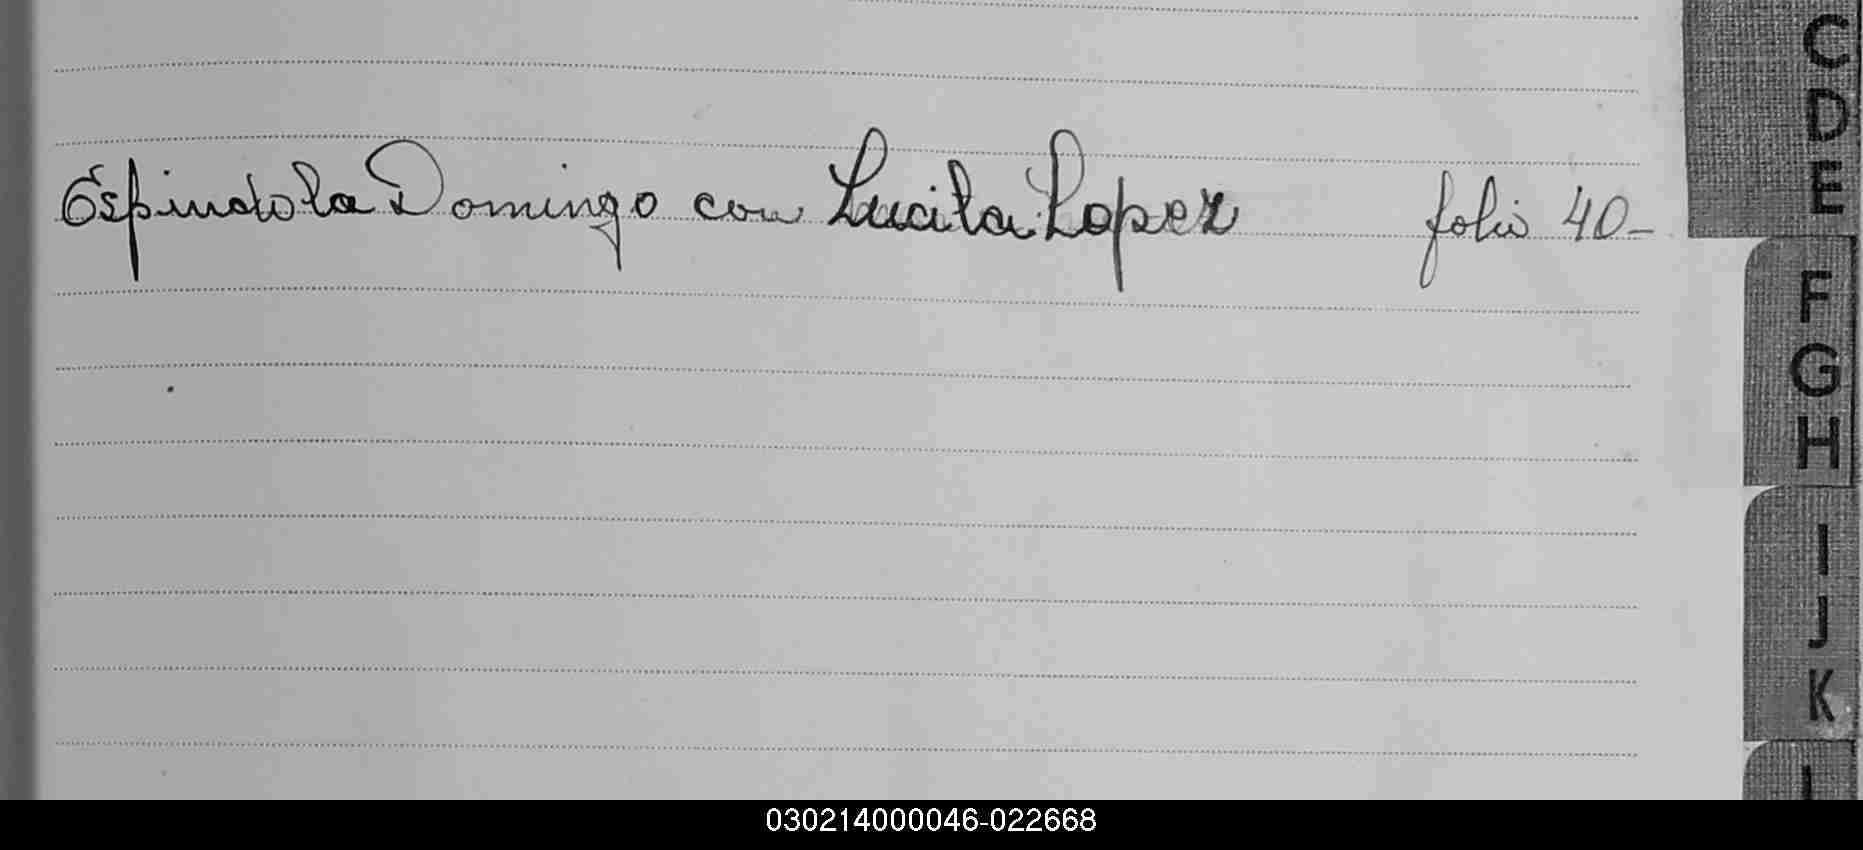 Espindola Domingo con Lucila Lopez folio 40-
C
D
E
F
G
H
I
J
K
L
030214000046-022668